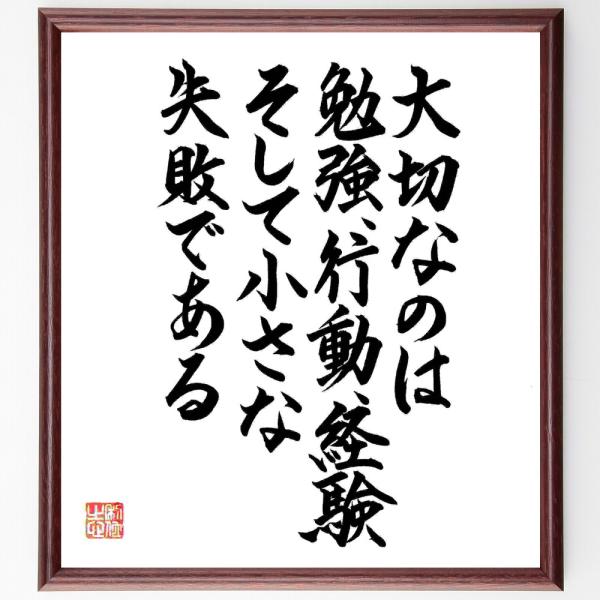 大切なのは
勉強、行動、経験
そして小さな
失敗である